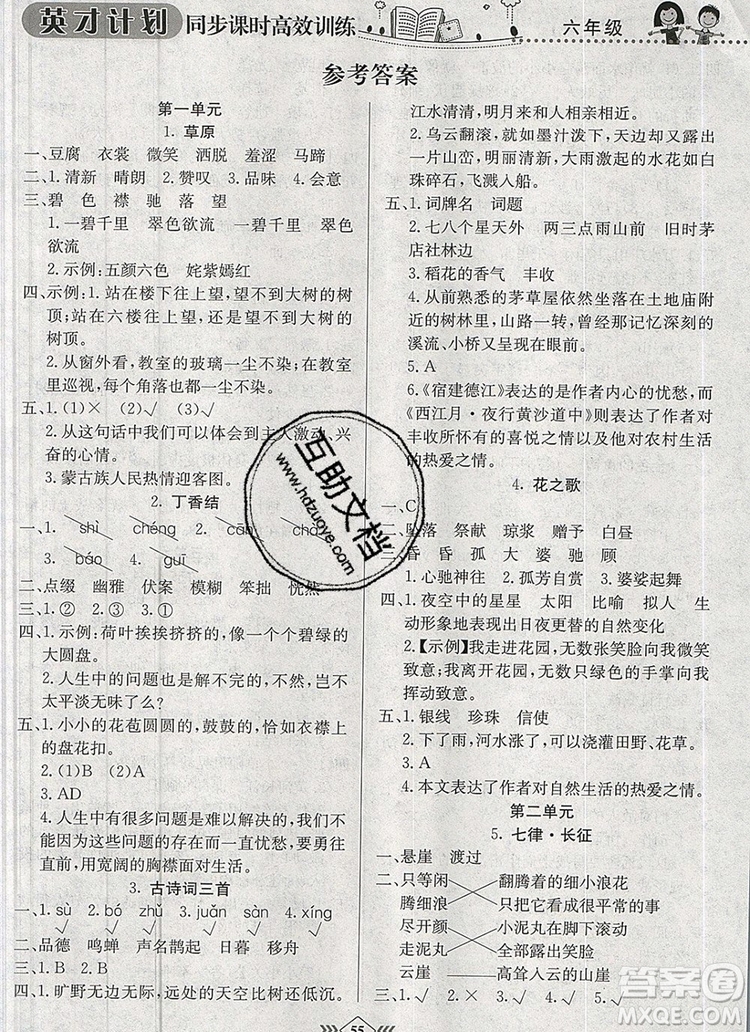 英才计划 同步课时高效训练
六年级
参考答案
第一单元
1. 草原
一、豆腐 衣裳 微笑 洒脱 羞涩 马蹄
二、1. 清新 晴朗 2. 赞叹 3. 品味 4. 会意
三、碧 色 襟 驰 落 望
1. 一碧千里 翠色欲流 一碧千里 翠色
欲流
2. 示例:五颜六色 姹紫嫣红
四、示例:1. 站在楼下往上望,望不到大树的树
顶;站在六楼往上望,还是望不到大树的
树顶。
2. 从窗外看,教室的玻璃一尘不染;在教室
里巡视,每个角落都一尘不染。
五、1. (1)× (2)√ (3)√
2. 从这句话中我们可以体会到主人激动、兴
奋的心情。
3. 蒙古族人民热情迎客图。
2. 丁香结
一、1. shì chéng 2. cā dàn
3. báo 4. guī
二、点缀 幽雅 伏案 模糊 笨拙 恍然
三、1. ① 2. ② 3. ①
四、1. 示例:荷叶挨挨挤挤的,像一个个碧绿的
大圆盘。
2. 人生中的问题也是解不完的,不然,岂不
太平淡无味了么?
五、1. 小小的花苞圆圆的,鼓鼓的,恰如衣襟上
的盘花扣。
2. (1)B (2)A
3. AD
4. 人生中有很多问题是难以解决的,我们不
因为这些问题的存在而一直忧愁,要勇往
直前,用宽阔的胸襟面对生活。
3. 古诗词三首
一、1. sù 2. bó zhǔ 3. juǎn sàn 4. xíng
√ √ √ √ √ √
二、品德 鸣蝉 声名鹊起 日暮 移舟
四、1. 旷野无边无际,远处的天空比树还低;
江水清清,明月来和人相亲相近。
2. 乌云翻滚,就如墨汁泼下,天边却又露出
一片山峦,明丽清新,大雨激起的水花如白
珠碎石,飞溅入船。
五、1. 词牌名 词题
2. 七八个星天外 两三点雨山前 旧时茅
店社林边
3. 稻花的香气 丰收
4. 以前熟悉的茅草屋依然坐落在土地庙附
近的树林里,山路一转,曾经那记忆深刻的
溪流、小桥又呈现在眼前。
5. A
6. 《宿建德江》表达的是作者内心的忧愁,而
《西江月·夜行黄沙道中》则表达了作者对
丰收所怀有的喜悦之情以及对农村生活的
的热爱之情。
4. 花之歌
一、C
二、坠落 祭献 琼浆 赠予 白昼
三、昏 昏 孤 大 婆 驰 顾
1. 心驰神往 2. 孤芳自赏 3. 婆娑起舞
四、1. 夜空中的星星 太阳 比喻 拟人 生
动形象地表现出日夜更替的自然变化
2.【示例】我走进花园,无数张笑脸向我微笑
致意;我离开花园,无数只绿色的手掌向我
挥动致意。
五、1. 银线 珍珠 信使
2. 下了雨,河水涨了,可以浇灌田野、花草。
3. A
4. 本文表达了作者对自然生活的热爱之情。
第二单元
5. 七律·长征
一、悬崖 渡过
二、只等闲 翻腾着的细小浪花
腾细浪 看作很平常
尽开颜 小泥丸在脚下滚动
走泥丸 全部露出笑脸
云崖 高耸入云的山崖
三、1. √ 2. √ 3. √ 4. √ 5. √
55
互助文档
www.hdzuoye.com
答案圈
MXQE.COM